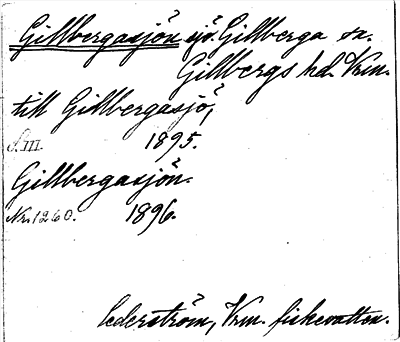 Gillbergasjön sjö. Gillberga sn.
Gillbergs hd. Vrm.
till Gillbergasjö,
S. III. 1895.
Gillbergasjön.
Nr. 1260. 1896.
Cederström, Vrm. fiskevatten.